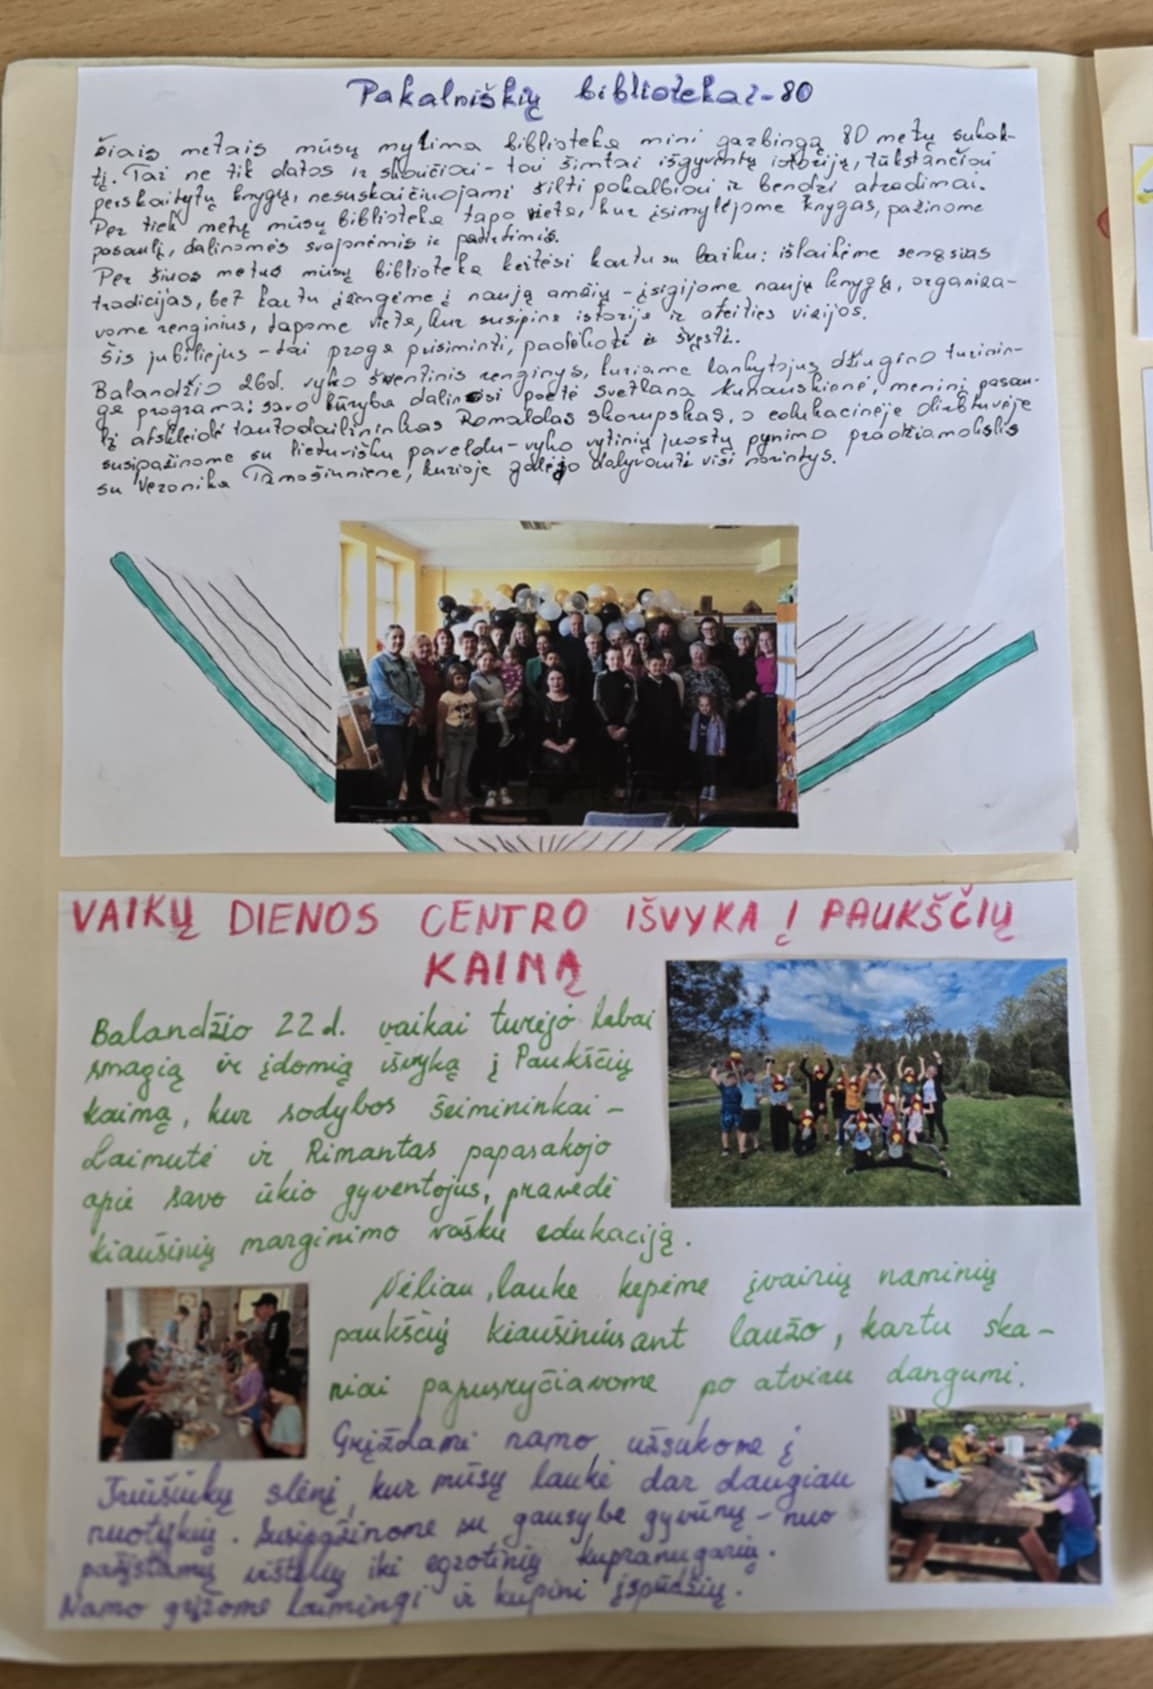 Pakalniškių bibliotekai-80
Šiais metais mūsų mylima biblioteka mini garbingą 80 metų sukak-
tį. Tai ne tik datos ir skaičiai - tai šimtai išgyventų istorijų, tūkstančiai
perskaitytų knygų, nesuskaičiuojami šilti pokalbiai ir bendri atradimai.
Per tiek metų mūsų biblioteka tapo vieta, kur įsimylėjome knygas, pažinome
pasaulį, dalinomės svajonėmis ir patirtimis.
Per šiuos metus mūsų biblioteka keitėsi kartu su laiku: išlaikėme senąsias
tradicijas, bet kartu įžengėme į naują amžių - įsigijome naujų knygų, organiza-
vome renginius, tapome vieta, kur susipina istorija ir ateities vizijos.
Šis jubiliejus - tai proga prisiminti, padėkoti ir švęsti.
Balandžio 26d. vyko šventinis renginys, kuriame lankytojus džiugino turinin-
ga programa: savo kūryba dalinosi poetė Svetlana Kunauskienė, meninį pasau-
lį atskleidė tautodailininkas Romaldas Skorupskas, o edukacinėje dirbtuvėje
susipažinome su lietuvišku paveldu - vyko vytinių juostų pynimo pradžiamokslis
su Veronika Tamošiuniene, kurioje galėjo dalyvauti visi norintys.
VAIKŲ DIENOS CENTRO IŠVYKA Į PAUKŠČIŲ
KAIMĄ
Balandžio 22d. vaikai turėjo labai
smagią ir įdomią išvyką į Paukščių
kaimą, kur sodybos šeimininkai -
Laimutė ir Rimantas papasakojo
apie savo ūkio gyventojus, pravedė
kiaušinių marginimo vašku edukaciją.
Vėliau, lauke kepėme įvairių naminių
paukščių kiaušinius ant laužo, kartu ska-
niai papusryčiavome po atviru dangumi.
Grįždami namo užsukome į
Triušiukų slėnį, kur mūsų laukė dar daugiau
nuotykių. Susipažinome su gausybe gyvūnų - nuo
pažįstamų vištelių iki egzotinių kupranugarių.
Namo grįžome laimingi ir kupini įspūdžių.